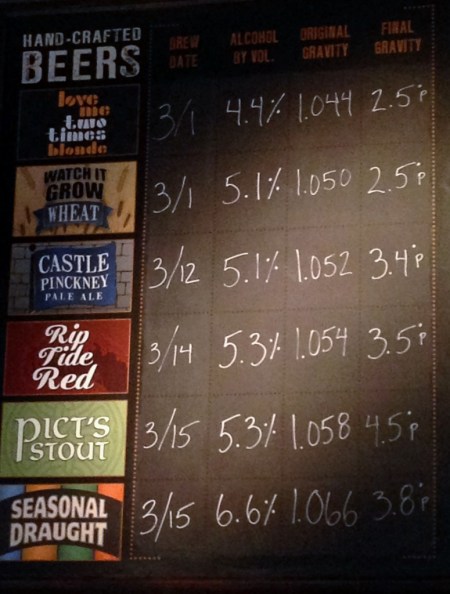 HAND-CRAFTED
BEERS
BREW DATE
ALCOHOL BY VOL.
ORIGINAL GRAVITY
FINAL GRAVITY
love
me
two
times
blonde
3/1 4.4% 1.044 2.5°P
WATCH IT
GROW
WHEAT
3/1 5.1% 1.050 2.5°P
CASTLE
PINCKNEY
PALE ALE
3/12 5.1% 1.052 3.4°P
Rip
Tide
Red
3/14 5.3% 1.054 3.5°P
PICT'S
STOUT
3/15 5.3% 1.058 4.5°P
SEASONAL
DRAUGHT
3/15 6.6% 1.066 3.8°P